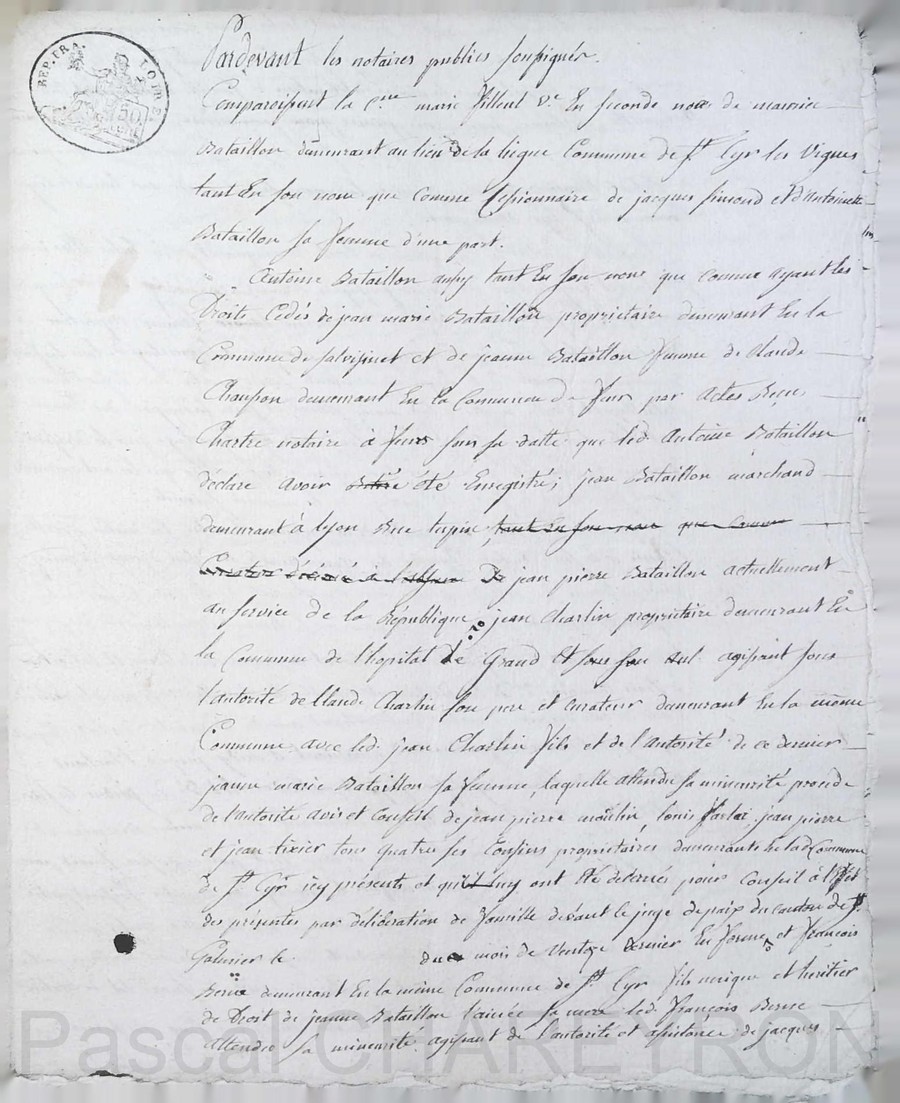 REP. FRA. LOIRE
50
Pardevant les notaires publics soussignés.
Comparoissent la Cne marie filleul Ve En seconde noce de maurice
Bataillon demeurant au lieu de la liegue Commune de St Cyr les Vignes
tant En son nom que comme Cessionnaire de jacques simond et d'Antoinette
Bataillon sa femme d'une part.
Antoine Bataillon aussy tant En son nom que comme ayant les
Droits Cedés de jean marie Bataillon proprietaire demeurant En la
Commune de salvizinet et de jeanne Bataillon femme de Claude
Chausson demeurant En la Commune de feur par actes Reçus
Chartre notaire à feurs sous sa datte que led. Antoine Bataillon
déclare avoir été Enregistré; jean Bataillon marchand
demeurant à lyon Rue tupin, tant En son nom que comme
jean pierre Bataillon actuellement
au service de la République, jean Charlin proprietaire demeurant En
la Commune de l'hopital Le Grand et agissant sous
l'autorité de Claude Charlin son pere et curateur demeurant En la même
Commune avec led. jean Charlin fils et de l'autorité de ce dernier
jeanne marie Bataillon sa femme, laquelle attendu sa minorité procede
de l'autorité avis et Conseil de jean pierre moulin, louis, jean pierre
et jean tixier tous quatre ses Cousins proprietaires demeurants En lad Commune
de St Cyr icy présents et qui luy ont été déferrés pour Conseil à l'Effet
des présentes par déliberation de famille devant le juge de paix du canton de St
Galmier le du mois de Ventose dernier En forme, et françois
Berne demeurant En la même Commune de St Cyr fils unique et heritier
de Droit de jeanne Bataillon sa mere led. françois Berne
Attendu sa minorité agissant de l'autorité et assistance de jacques
Pascal CHARETRON